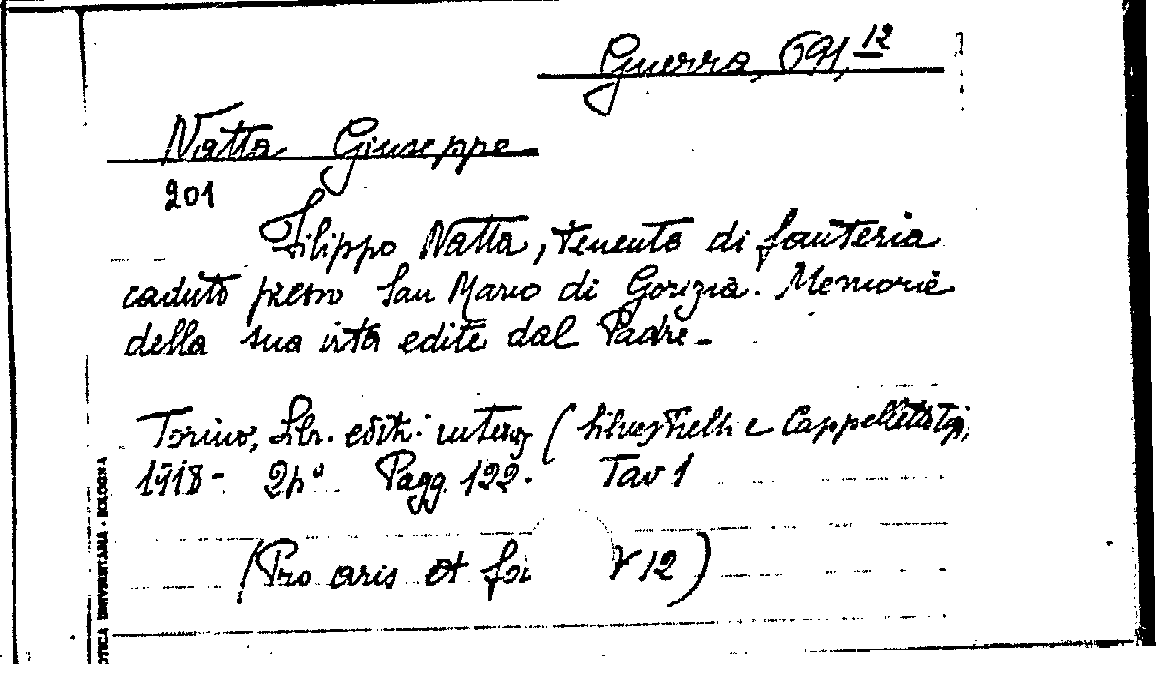 Guerra, 691,12
Natta Giuseppe
201
Filippo Natta, tenente di fanteria
caduto presso San Marco di Gorizia. Memorie
della sua vita edite dal Padre.
Torino, Libr. editr. intern. (Silvestrelli e Cappelletto tip.,
1918 - 24° Pagg. 122. Tav 1
(Pro aris et fo V 12)
OTECA UNIVERSITARIA - BOLOGNA